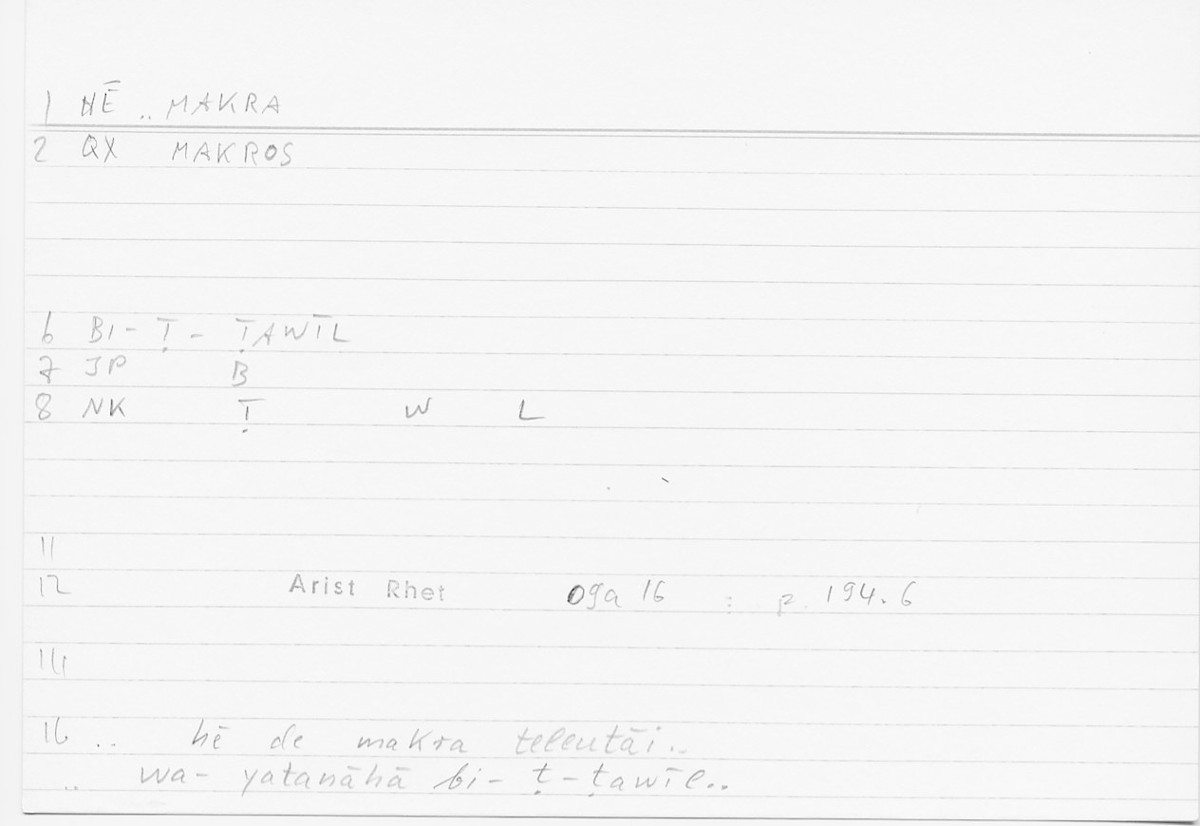 1 HĒ .. MAKRA
2 QX MAKROS
6 BI- Ṭ - ṬAWĪL
7 JP B
8 NK Ṭ W L
11
12 Arist Rhet 09a 16 : p. 194.6
14
16 .. hē de makra teleutāi..
.. wa- yatanāhā bi- ṭ-ṭawīl..